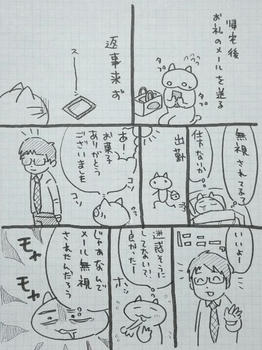 帰宅後
お礼のメールを送る
タプ
タプ
返事来ず
スー…
無視されてる?
仕方ないか
出勤
あー…
お菓子
ありがとう
ございました
コソ
コソ
いいよー
迷惑そうに
してない?!
良かったー
ホッ
じゃあなんで
メール無視
されたんだろう
モヤ
モヤ